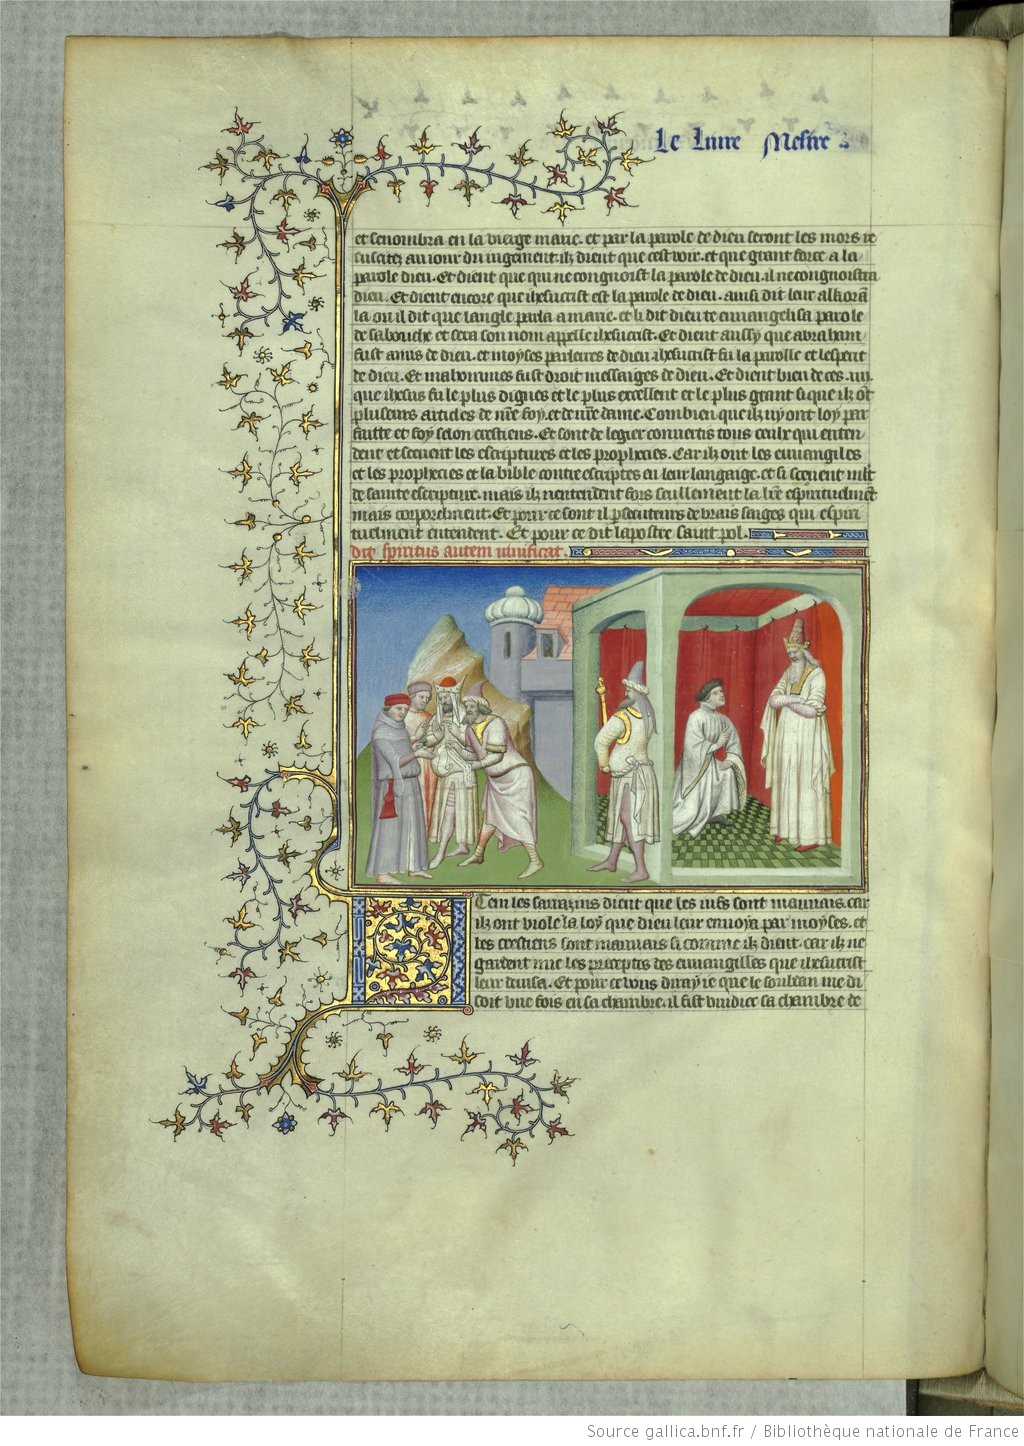 Le liure Mestre
et senombra en la vierge marie. et par la parole de dieu seront les mors re
suscitez au iour du iugement. ilz dient que cest voir. et que grant force a la
parole dieu. Et dient que qui ne congnoist la parole de dieu. il ne congnoistra
dieu. Et dient encore que ihesucrist est la parole de dieu. ainsi dit leur alkorã
la ou il dit que langle parla a marie. et li dit dieu te euuangelisa parole
de sa bouche et sera son nom appelle ihesucrist. Et dient aussy que abraham
fust amis de dieu. et moyses parleres de dieu. ihesucrist fu la parolle et lesperit
de dieu. Et mahommes fust droit messaiges de dieu. Et dient bien de ces .iiij.
que ihesus fu le plus dignes et le plus excellent et le plus grant si que ilz õt
pluseurs articles de nr̃e foy. et de nr̃e dame. Combien que ilz ny ont loy par
faitte et foy selon crestiens. Et sont de legier conuertis tous ceulx qui enten
dent et sceuent les escriptures et les prophecies. Car ilz ont les euuangiles
et les prophecies et la bible contre escriptes en leur langaige. et si sceuent mlt
de sainte escripture. mais ilz nentendent fors seullement la lr̃e espirituelment
mais corporelment. Et pour ce sont il persecuteurs de vrais saiges qui espiri
tuelment entendent. Et pour ce dit lapostre saint pol.
dicit spiritus autem uiuificat.
Item les sarrazins dient que les iuifs sont mauuais. car
ilz ont viole la loy que dieu leur enuoya par moyses. et
les crestiens sont mauuais si comme ilz dient. car ilz ne
gardent mie les preceptes des euuangilles que ihesucrist
leur deuisa. Et pour ce vous diray ie que le soudan me di
soit vne fois en sa chambre. il fist vuidier sa chambre de
Source gallica.bnf.fr / Bibliothèque nationale de France